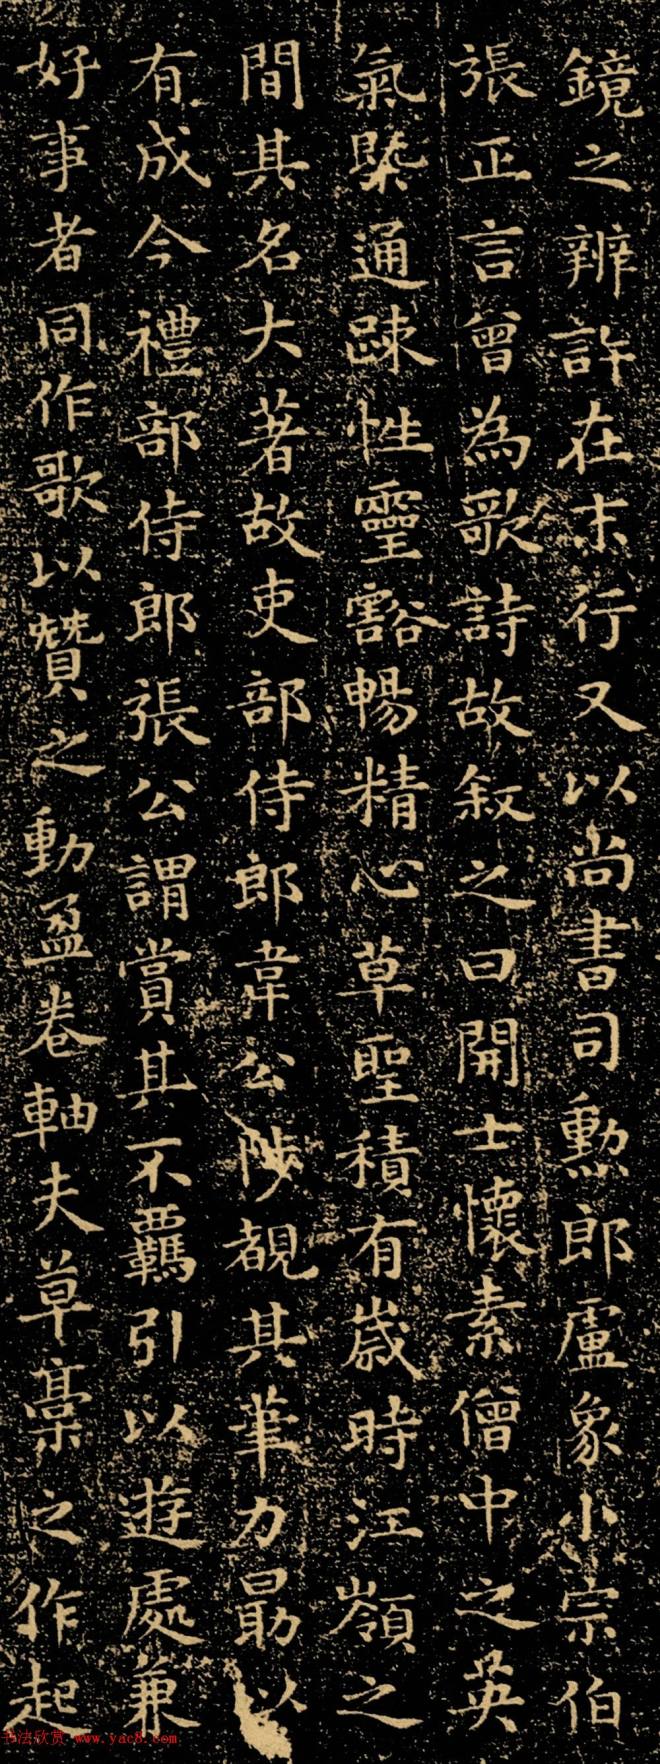 鏡之辨許在末行又以尚書司勲郎盧象小宗伯
張正言曾為歌詩故叙之曰開士懷素僧中之英
氣槩通踈性靈豁暢精心草聖積有歲時江嶺之
間其名大著故吏部侍郎韋公陟覩其筆力勗以
有成今禮部侍郎張公謂賞其不羈引以遊處兼
好事者同作歌以贊之動盈卷軸夫草稾之作起
书法欣赏 www.yac8.com